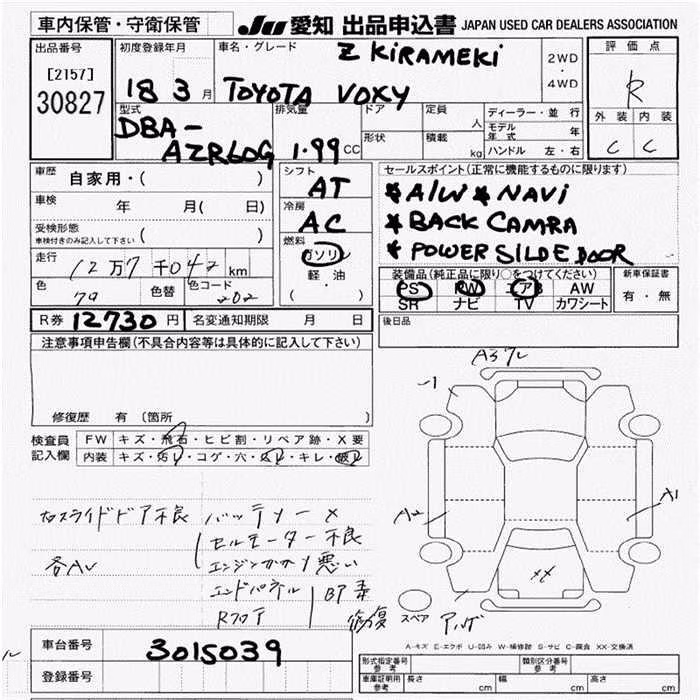 車内保管・守衛保管
JU 愛知 出品申込書 JAPAN USED CAR DEALERS ASSOCIATION
出品番号
[2157]
30827
初度登録年月
18 3 月
車名・グレード
Z KIRAMEKi
TOYOTA VOXY
2WD
・
4WD
評価点
R
外装 内装
C C
型式
DBA-
AZR60G
排気量
1.99 CC
ドア
定員
人
形状
積載
kg
ディーラー・並行
モデル年式 年
ハンドル 左・右
車歴
自家用・( )
車検
年 月( 日)
受検形態
車検付きのみ記入して下さい ( )
走行
12万7千042 km
色
79
色替
色コード
202
シフト
AT
冷房
AC
燃料
ガソリン
軽・油
( ・ )
セールスポイント(正常に機能するものに限ります)
*A/W *NAVi
*BACK CAMRA
*POWER SILDE DOOR
装備品(純正品に限り○をつけてください)
PS PW エアB AW
SR ナビ TV カワシート
新車保証書
有・無
R券 12730 円
名変通知期限 月 日
後日品
注意事項申告欄(不具合内容等は具体的に記入して下さい)
修復歴 有 〔箇所
検査員
記入欄
FW キズ・飛石・ヒビ割・リペア跡・X要
内装 キズ・汚レ・コゲ・穴・・キレ・破レ
スライドドア不良 バッテリー×
セルモーター不良
各AV エンジンかかり悪い
エンドパネル
Rフロア
修復
A3 フレ
-1
A2
A1
XX
スペア
A-キズ E-エクボ U-凹み W-補修跡 S-サビ C-腐食 XX-交換済
車台番号
3015039
登録番号
型式指定番号
参考
類別区分番号
参考
車庫証明用
参考
長さ cm
幅 cm
高さ cm